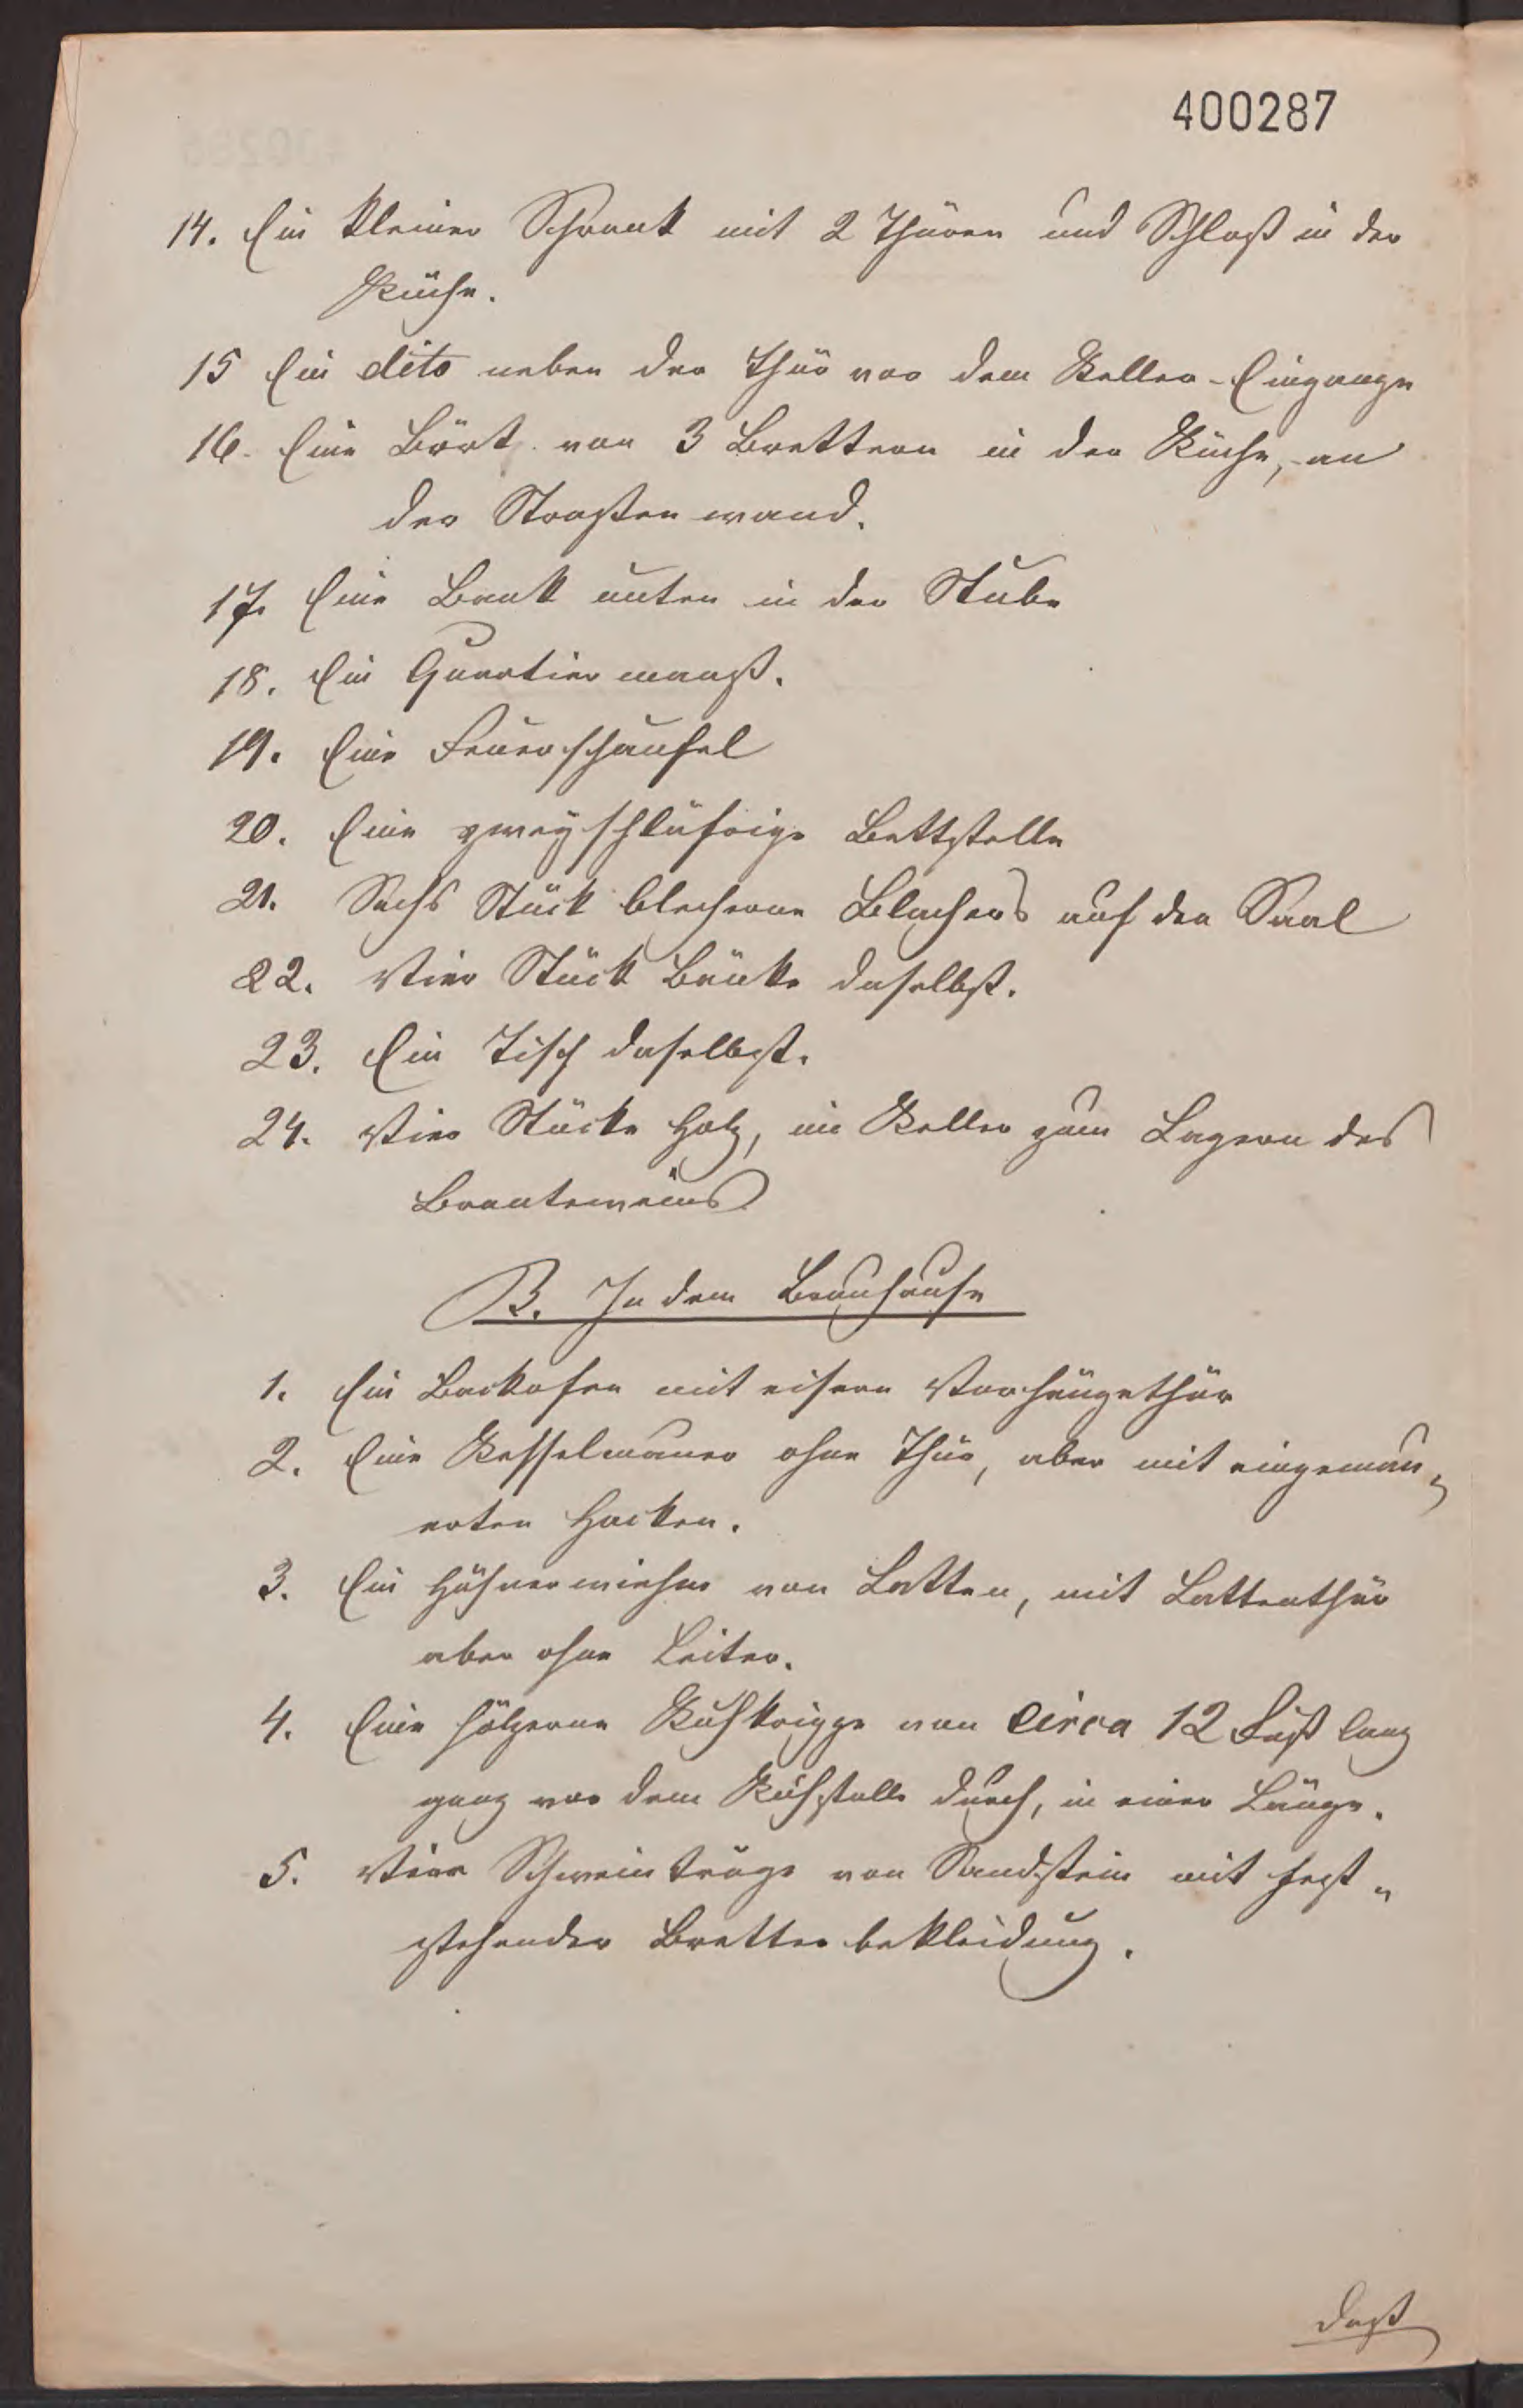 400287
14. Ein kleiner Schrank mit 2 Thüren und Schloß in der
Küche.
15 Ein dito neben der Thür vor dem Keller-Eingange
16. Eine Bört von 3 Brettern in der Küche, an
der Straßenwand.
17. Eine Bank unten in der Stube
18. Ein Quartiermaaß.
19. Eine Feuerschaufel
20. Eine zweyschläfrige Bettstelle
21. Sechs Stück blecherne Blachers auf den Saal
22. Vier Stück Bänke daselbst.
23. Ein Tisch daselbst.
24. Vier Stücke Holz, im Keller zum Lagern des
Branteweins
B. In dem Brauhause
1. Ein Backofen mit eisern Vorhängethür
2. Eine Kesselmauer ohne Thür, aber mit eingemau„
erten Hacken.
3. Ein Hühnerwiehm von Latten, mit Lattenthür
aber ohne Leiter.
4. Eine hölzerne Kuhkrigge von circa 12 Fuß lang
ganz vor dem Kuhstalle durch, in einer Länge.
5. Vier Schweintröge von Sandstein mit fest„
stehender Bretterbekleidung.
Daß